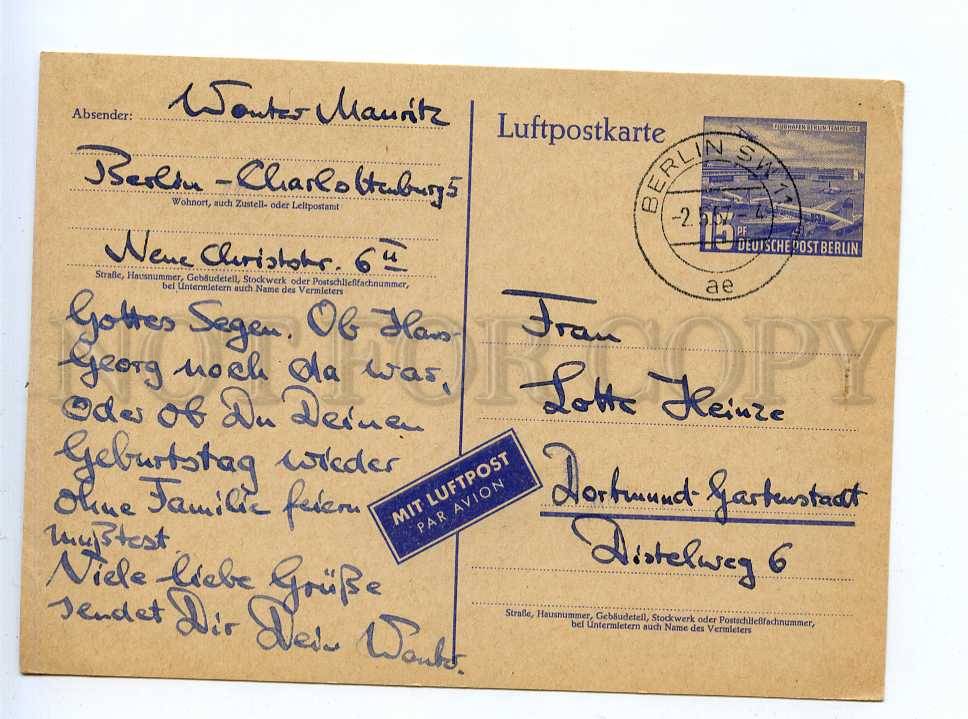 Absender: Wonter Mauritz
Berlin - Charlottenburg 5
Wohnort, auch Zustell- oder Leitpostamt
Neue Christstr. 6 II
Straße, Hausnummer, Gebäudeteil, Stockwerk oder Postschließfachnummer,
bei Untermietern auch Name des Vermieters
Gottes Segen. Ob Hans-
Georg noch da war,
oder ob Du Deinen
Geburtstag wieder
ohne Familie feiern
mußtest.
Viele liebe Grüße
sendet Dir Dein
MIT LUFTPOST
PAR AVION
Luftpostkarte
FLUGHAFEN BERLIN-TEMPELHOF
15 PF DEUTSCHE POST BERLIN
BERLIN SW 11
-2.5.57.-4
ae
Frau
Lotte Heinze
Dortmund-Gartenstadt
Distelweg 6
Straße, Hausnummer, Gebäudeteil, Stockwerk oder Postschließfachnummer,
bei Untermietern auch Name des Vermieters
NOT FOR COPY